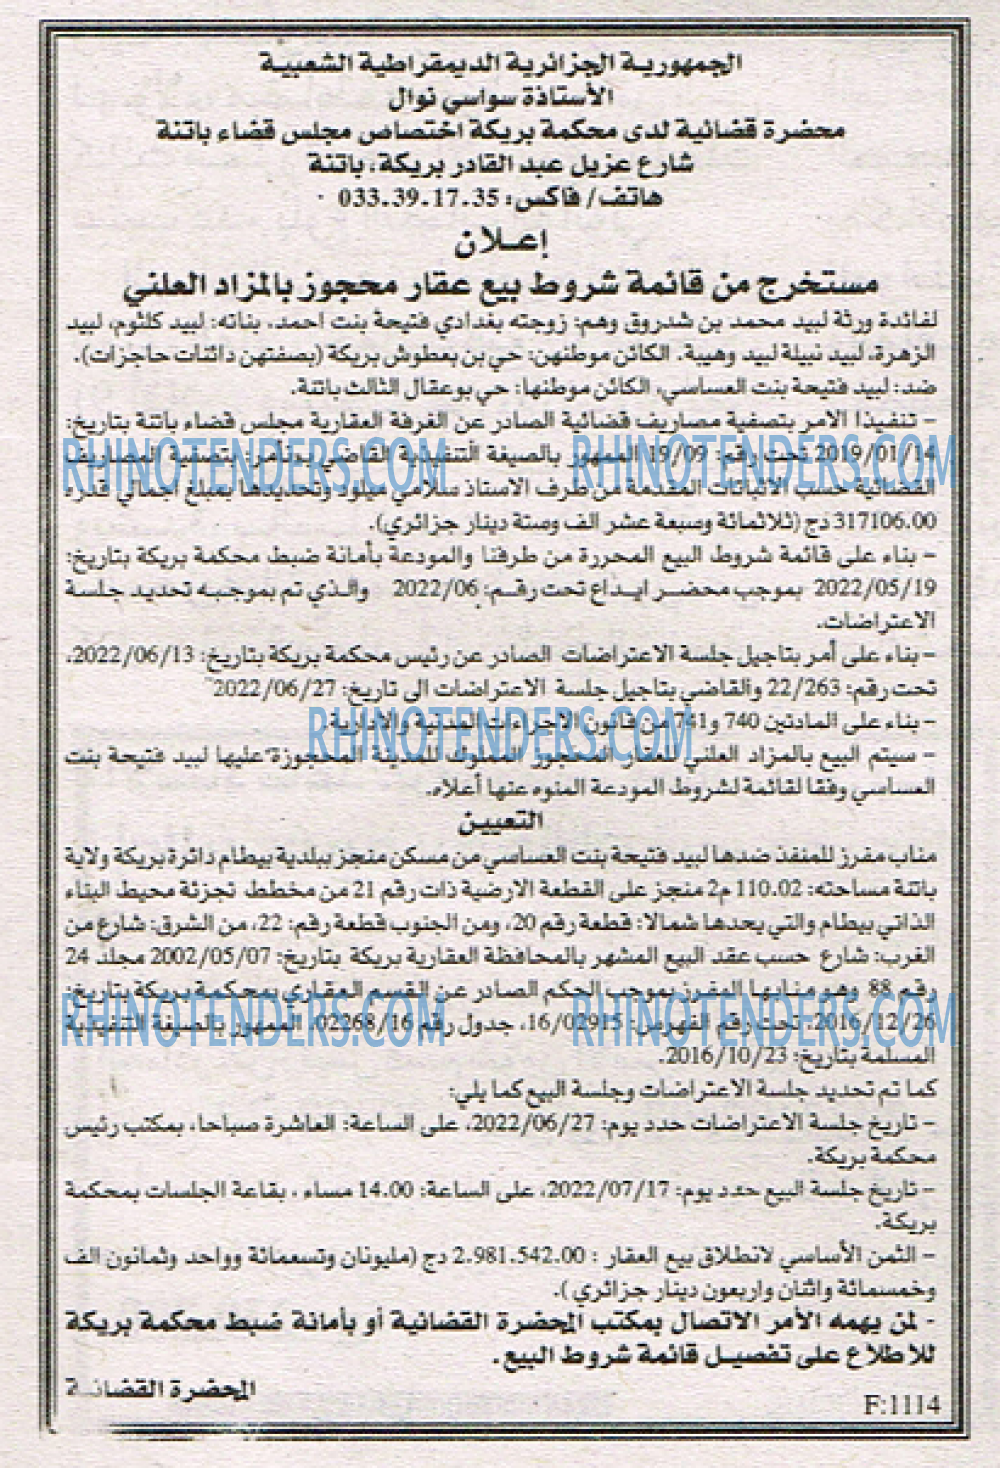 الجمهورية الجزائرية الديمقراطية الشعبية
الأستاذة سواسي نوال
محضرة قضائية لدى محكمة بريكة اختصاص مجلس قضاء باتنة
شارع عزيل عبد القادر بريكة، باتنة
هاتف/ فاكس: 033.39.17.35
إعلان
مستخرج من قائمة شروط بيع عقار محجوز بالمزاد العلني
لفائدة ورثة لبيد محمد بن شدروق وهم: زوجته بغدادي فتيحة بنت احمد، بناته: لبيد كلثوم، لبيد
الزهرة، لبيد نبيلة لبيد وهيبة. الكائن موطنهن: حي بن بعطوش بريكة (بصفتهن دائنات حاجزات).
ضد: لبيد فتيحة بنت العساسي، الكائن موطنها: حي بوعقال الثالث باتنة.
– تنفيذا الامر بتصفية مصاريف قضائية الصادر عن الغرفة العقارية مجلس قضاء باتنة بتاريخ:
2019/01/14 تحت رقم: 19/09 الممهور بالصيغة التنفيذية القاضي بـ: نامر: بتصفية المصاريف
القضائية حسب الاثباتات المقدمة من طرف الاستاذ سلامي ميلود وتحديدها بمبلغ اجمالي قدره
317106.00 دج (ثلاثمائة وسبعة عشر الف وستة دينار جزائري).
– بناء على قائمة شروط البيع المحررة من طرفنا والمودعة بأمانة ضبط محكمة بريكة بتاريخ:
2022/05/19 بموجب محضر ايداع تحت رقم: 2022/06 والذي تم بموجبه تحديد جلسة
الاعتراضات.
– بناء على أمر بتاجيل جلسة الاعتراضات الصادر عن رئيس محكمة بريكة بتاريخ: 2022/06/13،
تحت رقم: 22/263 والقاضي بتاجيل جلسة الاعتراضات الى تاريخ: 2022/06/27
– بناء على المادتين 740 و741 من قانون الاجراءات المدنية والادارية.
– سيتم البيع بالمزاد العلني للعقار المحجوز المملوك للمدينة المحجوزة عليها لبيد فتيحة بنت
العساسي وفقا لقائمة لشروط المودعة المنوه عنها أعلاه.
التعيين
مناب مفرز للمنفذ ضدها لبيد فتيحة بنت العساسي من مسكن منجز ببلدية بيطام دائرة بريكة ولاية
باتنة مساحته: 110.02 م2 منجز على القطعة الارضية ذات رقم 21 من مخطط تجزئة محيط البناء
الذاتي ببيطام والتي يحدها شمالا: قطعة رقم 20، ومن الجنوب قطعة رقم: 22، من الشرق: شارع من
الغرب: شارع حسب عقد البيع المشهر بالمحافظة العقارية بريكة بتاريخ: 2002/05/07 مجلد 24
رقم 88 وهو منابها المفرز بموجب الحكم الصادر عن القسم العقاري بمحكمة بريكة بتاريخ:
2016/12/26، تحت رقم الفهرس: 16/02915، جدول رقم 02368/16، الممهور بالصيغة التنفيذية
المسلمة بتاريخ: 2016/10/23.
كما تم تحديد جلسة الاعتراضات وجلسة البيع كما يلي:
– تاريخ جلسة الاعتراضات حدد يوم: 2022/06/27، على الساعة: العاشرة صباحا، بمكتب رئيس
محكمة بريكة.
– تاريخ جلسة البيع حدد يوم: 2022/07/17، على الساعة: 14.00 مساء ، بقاعة الجلسات بمحكمة
بريكة.
– الثمن الأساسي لانطلاق بيع العقار : 2.981.542.00 دج (مليونان وتسعمائة وواحد وثمانون الف
وخمسمائة واثنان واربعون دينار جزائري ).
- لمن يهمه الأمر الاتصال بمكتب المحضرة القضائية أو بأمانة ضبط محكمة بريكة
للاطلاع على تفصيل قائمة شروط البيع.
المحضرة القضائية
F:1114
RHINOTENDERS.COM
RHINOTENDERS.COM
RHINOTENDERS.COM
RHINOTENDERS.COM
RHINOTENDERS.COM